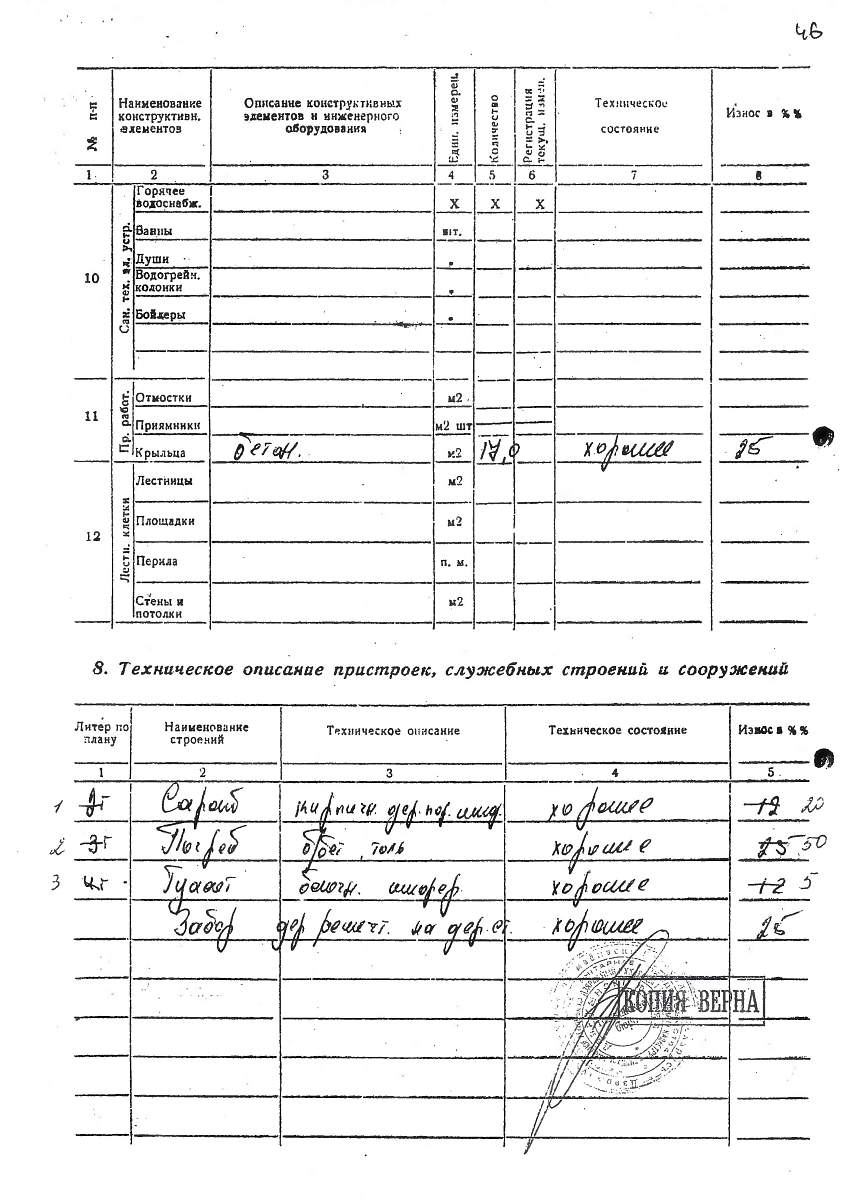 46
№ п-п
Наименование конструктивн. элементов
Описание конструктивных элементов и инженерного оборудования
Един. измерен.
Количество
Регистрация текущ. измен.
Техническое состояние
Износ в %%
1 2 3 4 5 6 7 8
10
Сан. тех. эл. устр.
Горячее водоснабж. X X X
Ванны шт.
Души "
Водогрейн. колонки "
Бойлеры "
11
Пр. работ.
Отмостки м2
Приямники м2 шт
Крыльца бетон. м2 17,0 хорошее 25
12
Лестн. клетки
Лестницы м2
Площадки м2
Перила п. м.
Стены и потолки м2
8. Техническое описание пристроек, служебных строений и сооружений
Литер по плану
Наименование строений
Техническое описание
Техническое состояние
Износ в %%
1 2 3 4 5
1 2г Сарай кирпичн. дер. хорошее 12 20
2 3г Погреб толь хорошее 25 50
3 4г хорошее 12 5
Забор дер решетч. на дер. ст. хорошее 25
КОПИЯ ВЕРНА